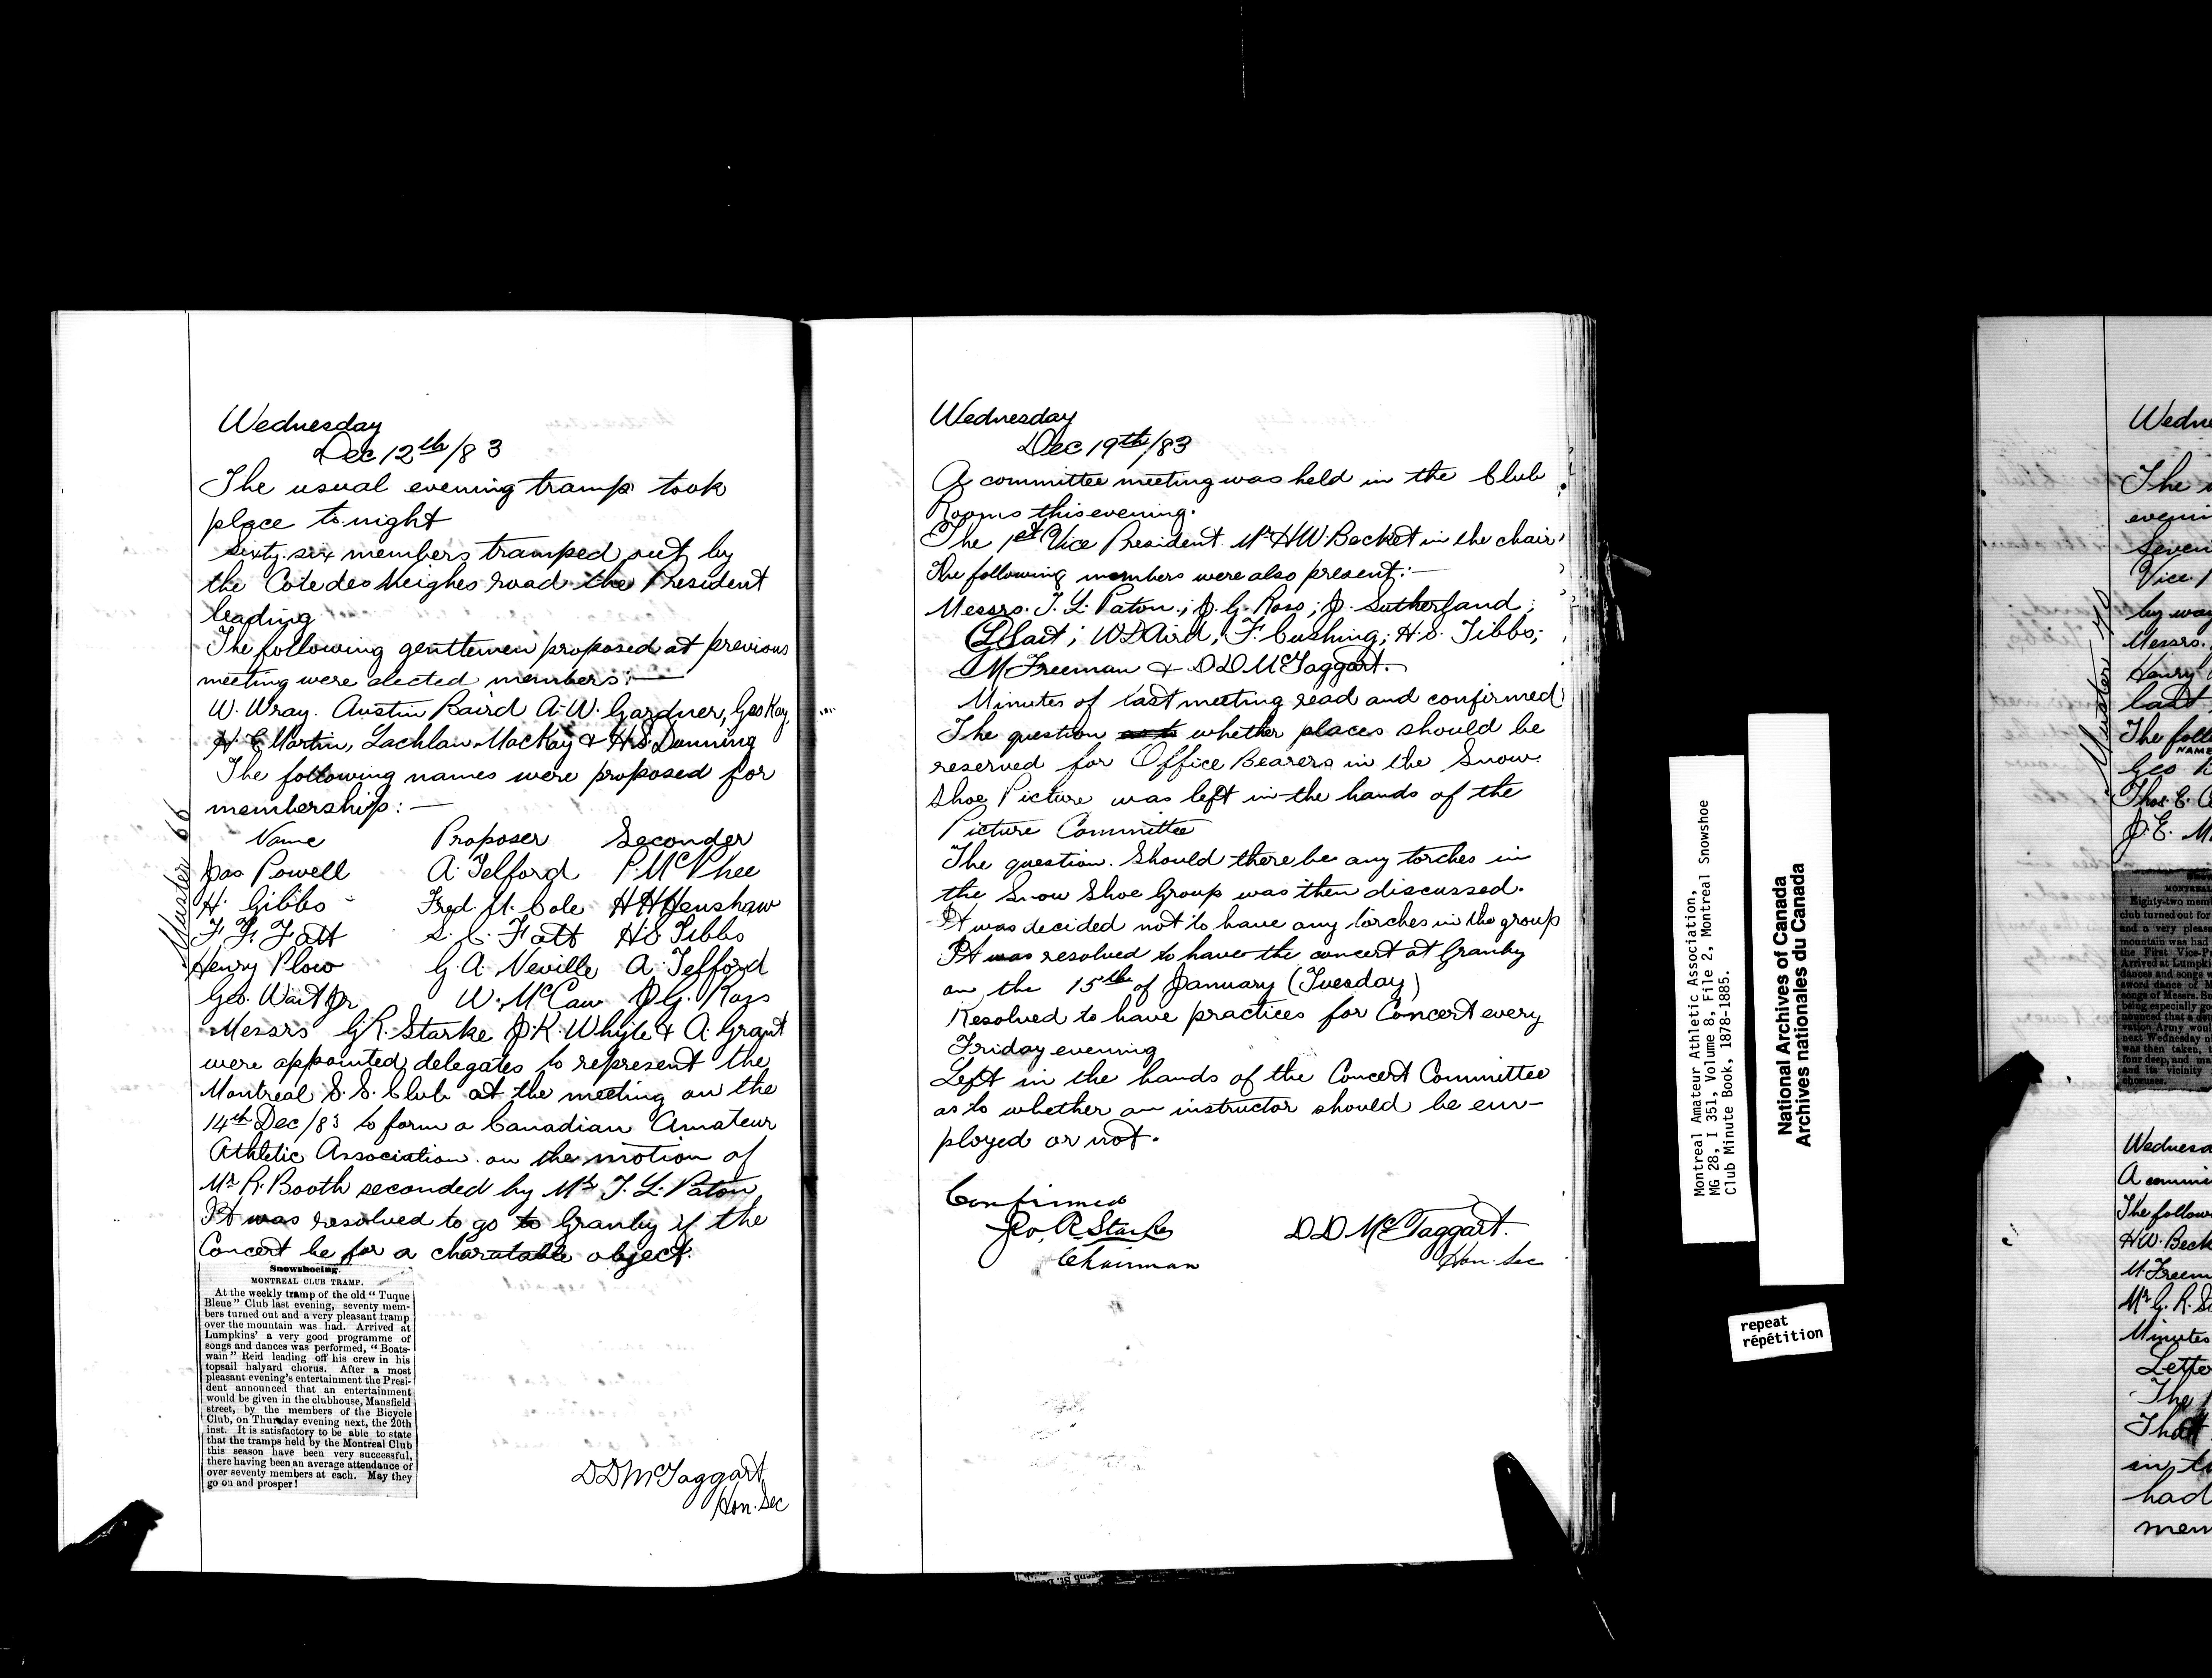 Wednesday
Dec 12th/83
The usual evening tramp took
place to night
Sixty six members tramped out by
the Cote des Neighes road the President
leading
The following gentlemen proposed at previous
meeting were elected members:—
W. Wray. Austin Baird A. W. Gardner, Geo Kay
H. E. Martin, Lachlan MacKay & H. S. Dunning
The following names were proposed for
membership:—
Name Proposer Seconder
Muster 66
Jas Powell A. Telford P. McPhee
H. Gibbs Fred. M. Cole H H Henshaw
F. F. Fatt S. C. Fatt H S Tibbs
Henry Plow G. A. Neville A. Telford
Geo. Wait Jr W. McCaw J G. Ross
Messrs G R. Starke J. K. Whyte & A. Grant
were appointed delegates to represent the
Montreal S. S. Club at the meeting on the
14th Dec/83 to form a Canadian Amateur
Athletic Association on the motion of
Mr R. Booth seconded by Mr T. L. Paton
It was resolved to go to Granby if the
Concert be for a charatable object.
Snowshoeing.
MONTREAL CLUB TRAMP.
At the weekly tramp of the old "Tuque
Bleue" Club last evening, seventy mem-
bers turned out and a very pleasant tramp
over the mountain was had. Arrived at
Lumpkins' a very good programme of
songs and dances was performed, "Boats-
wain" Reid leading off his crew in his
topsail halyard chorus. After a most
pleasant evening's entertainment the Presi-
dent announced that an entertainment
would be given in the clubhouse, Mansfield
street, by the members of the Bicycle
Club, on Thursday evening next, the 20th
inst. It is satisfactory to be able to state
that the tramps held by the Montreal Club
this season have been very successful,
there having been an average attendance of
over seventy members at each. May they
go on and prosper!
D D McTaggart
Hon. Sec
Wednesday
Dec 19th/83
A committee meeting was held in the Club
Rooms this evening.
The 1st Vice President Mr H W. Becket in the chair
The following members were also present:—
Messrs. T. L. Paton.; J. G. Ross; J. Sutherland;
W D Aird; F. Cushing; H. S. Tibbs;
M Freeman & D D McTaggart.
Minutes of last meeting read and confirmed
The question as to whether places should be
reserved for Office Bearers in the Snow
Shoe Picture was left in the hands of the
Picture Committee
The question. Should there be any torches in
the Snow Shoe Group was then discussed.
It was decided not to have any torches in the group
It was resolved to have the concert at Granby
on the 15th of January (Tuesday)
Resolved to have practices for Concert every
Friday evening
Left in the hands of the Concert Committee
as to whether an instructor should be em-
ployed or not.
Confirmed
Geo. R Starke
Chairman
D D McTaggart.
Hon. Sec
Montreal Amateur Athletic Association,
MG 28, I 351, Volume 8, File 2, Montreal Snowshoe
Club Minute Book, 1878-1885.
National Archives of Canada
Archives nationales du Canada
repeat
répétition
Wedne
The
eveni
Seven
Vice.
by way
Messrs.
Henry
last
Muster 70
The foll
NAME
Geo
Thos. E.
J. E. M
MONTREAL
Eighty-two mem
club turned out for
and a very pleas
mountain was had
the First Vice-Pr
Arrived at Lumpki
dances and songs
sword dance of M
songs of Messrs. Su
being especially goo
nounced that a det
vation Army wou
next Wednesday n
was then taken, t
four deep, and ma
and its vicinity
choruses.
Wednesd
A commi
The follow
H W. Beck
M. Freem
Mr G. R. St
Minutes
Lette
The
That
in t
had
mem